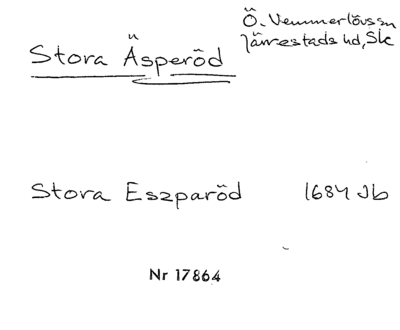 Stora Äsperöd
Ö. Vemmerlövs sn
Järrestads hd, Sk
Stora Eszparöd 1684 Jb
Nr 17864